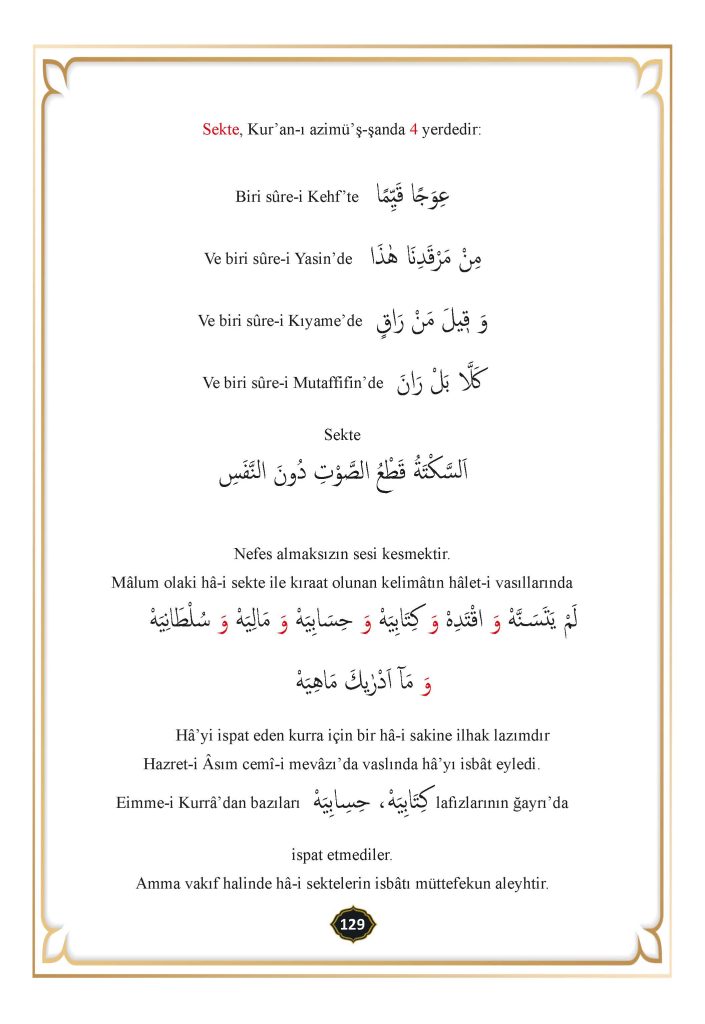 Sekte, Kur’an-ı azimü’ş-şanda 4 yerdedir:
Biri sûre-i Kehf’te عِوَجًا قَيِّمًا
Ve biri sûre-i Yasin’de مِنْ مَرْقَدِنَا هٰذَا
Ve biri sûre-i Kıyame’de وَ ق۪يلَ مَنْ رَاقٍ
Ve biri sûre-i Mutaffifin’de كَلَّا بَلْ رَانَ
Sekte
اَلسَّكْتَةُ قَطْعُ الصَّوْتِ دُونَ النَّفَسِ
Nefes almaksızın sesi kesmektir.
Mâlum olaki hâ-i sekte ile kıraat olunan kelimâtın hâlet-i vasıllarında
لَمْ يَتَسَنَّهْ وَ اقْتَدِهْ وَ كِتَابِيَهْ وَ حِسَابِيَهْ وَ مَالِيَهْ وَ سُلْطَانِيَهْ
وَ مَآ اَدْرٰيكَ مَاهِيَهْ
Hâ’yi ispat eden kurra için bir hâ-i sakine ilhak lazımdır
Hazret-i Âsım cemî-i mevâzı’da vaslında hâ’yı isbât eyledi.
Eimme-i Kurrâ’dan bazıları كِتَابِيَهْ، حِسِابِيَهْ lafızlarının ğayrı’da
ispat etmediler.
Amma vakıf halinde hâ-i sektelerin isbâtı müttefekun aleyhtir.
129